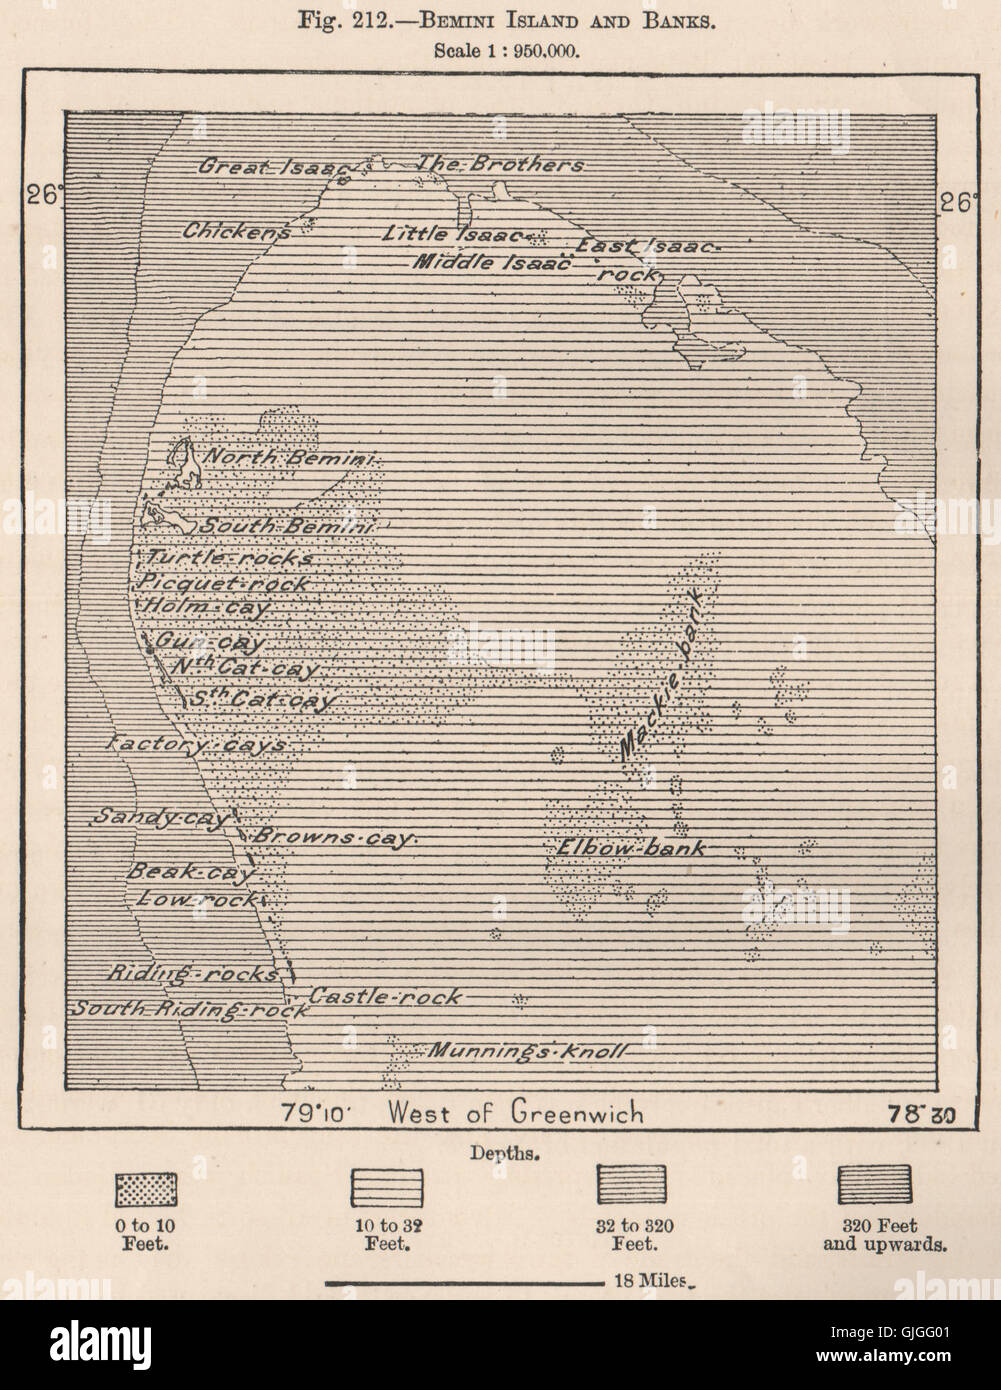 Fig. 212.—Bemini Island and Banks.
Scale 1 : 950,000.
Great Isaac
The Brothers
26°
26°
Chickens
Little Isaac
East Isaac-
Middle Isaac
rock
North Bemini
South Bemini
Turtle-rocks
Picquet-rock
Holm-cay
Gun-cay
Nth Cat-cay
Sth Cat-cay
Mackie-bank
Factory-cays
Sandy-cay
Browns-cay.
Elbow-bank
Beak-cay
Low-rock
Riding-rocks
Castle-rock
South Riding-rock
Munning's-Knoll
79°10' West of Greenwich 78°30
Depths.
0 to 10
Feet.
10 to 32
Feet.
32 to 320
Feet.
320 Feet
and upwards.
18 Miles.
alamy
Image ID: GJGG01
www.alamy.com